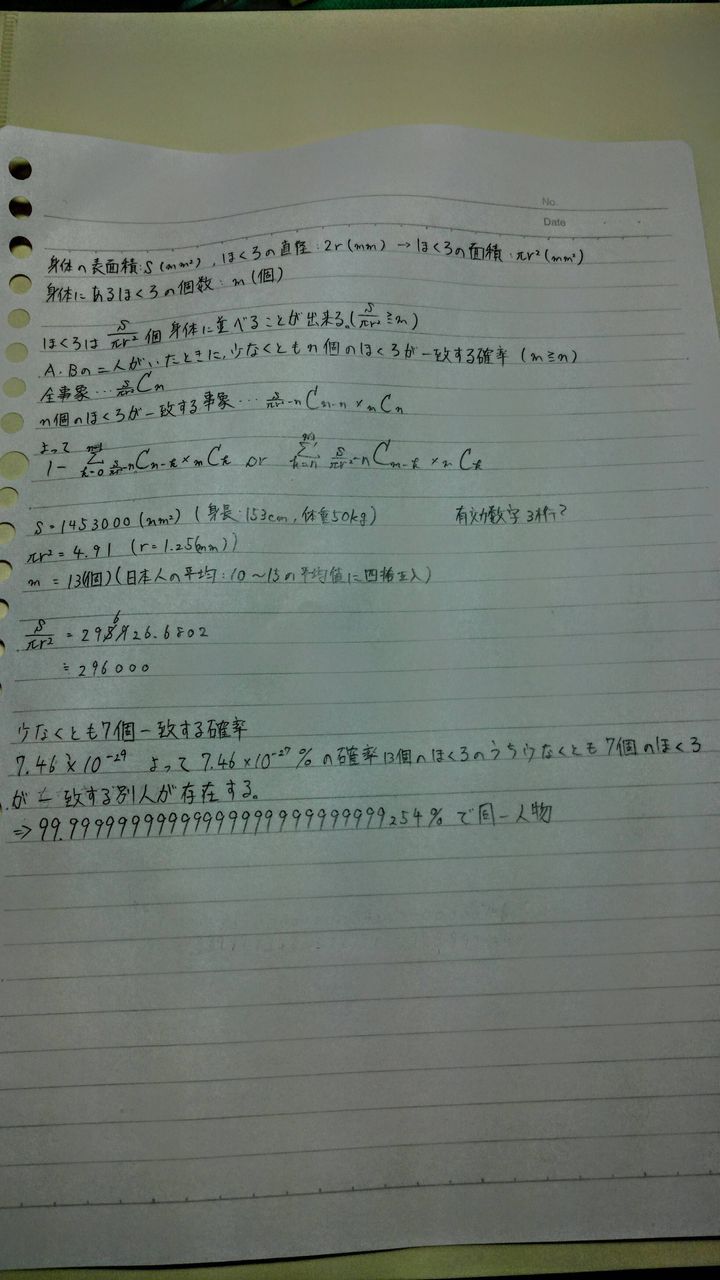 No.
Date
身体の表面積:S(mm²), ほくろの直径:2r(mm) → ほくろの面積:πr²(mm²)
身体にあるほくろの個数:m(個)
ほくろは S/πr² 個身体に並べることが出来る。(S/πr² ≧ m)
A.Bの二人がいたときに,少なくともn個のほくろが一致する確率 (m≧n)
全事象…
n個のほくろが一致する事象… S/πr²-n C m-n × m C n
よって
1- Σ k=0 or Σ k=n
S=1453000(mm²) (身長:153cm,体重50kg) 有効数字3桁?
πr²=4.91 (r=1.25(mm))
m=13(個)(日本人の平均:10~15の平均値に四捨五入)
S/πr² = 295926.6802
≒296000
少なくとも7個一致する確率
7.46×10⁻²⁹ よって 7.46×10⁻²⁷%の確率13個のほくろのうち少なくとも7個のほくろ
が一致する別人が存在する。
で同一人物